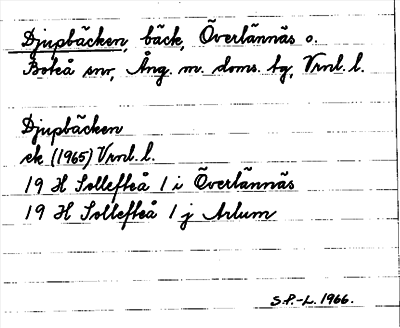 Djupbäcken, bäck, Överlännäs o.
Boteå snr, Ång. m. doms. bg, Vrnl. l.
Djupbäcken
ek (1965) Vrnl. l.
19 H Sollefteå 1 i Överlännäs
19 H Sollefteå 1 j Arlum
S.P.-L. 1966.